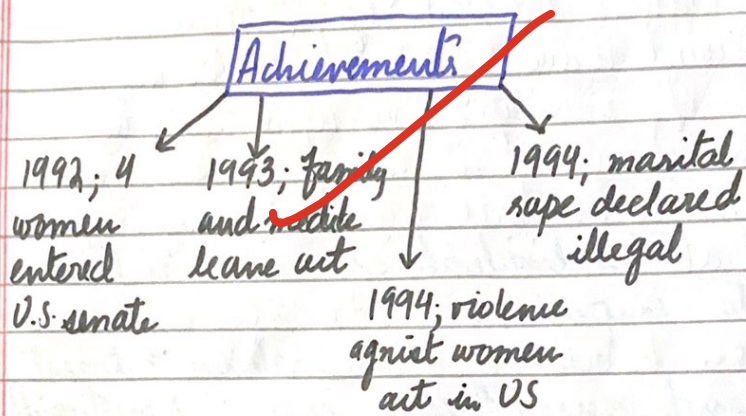 Achievements
1992; 4
women
entered
U.S. senate
1993; family
and
leave act
1994; violence
agnist women
act in US
1994; marital
rape declared
illegal